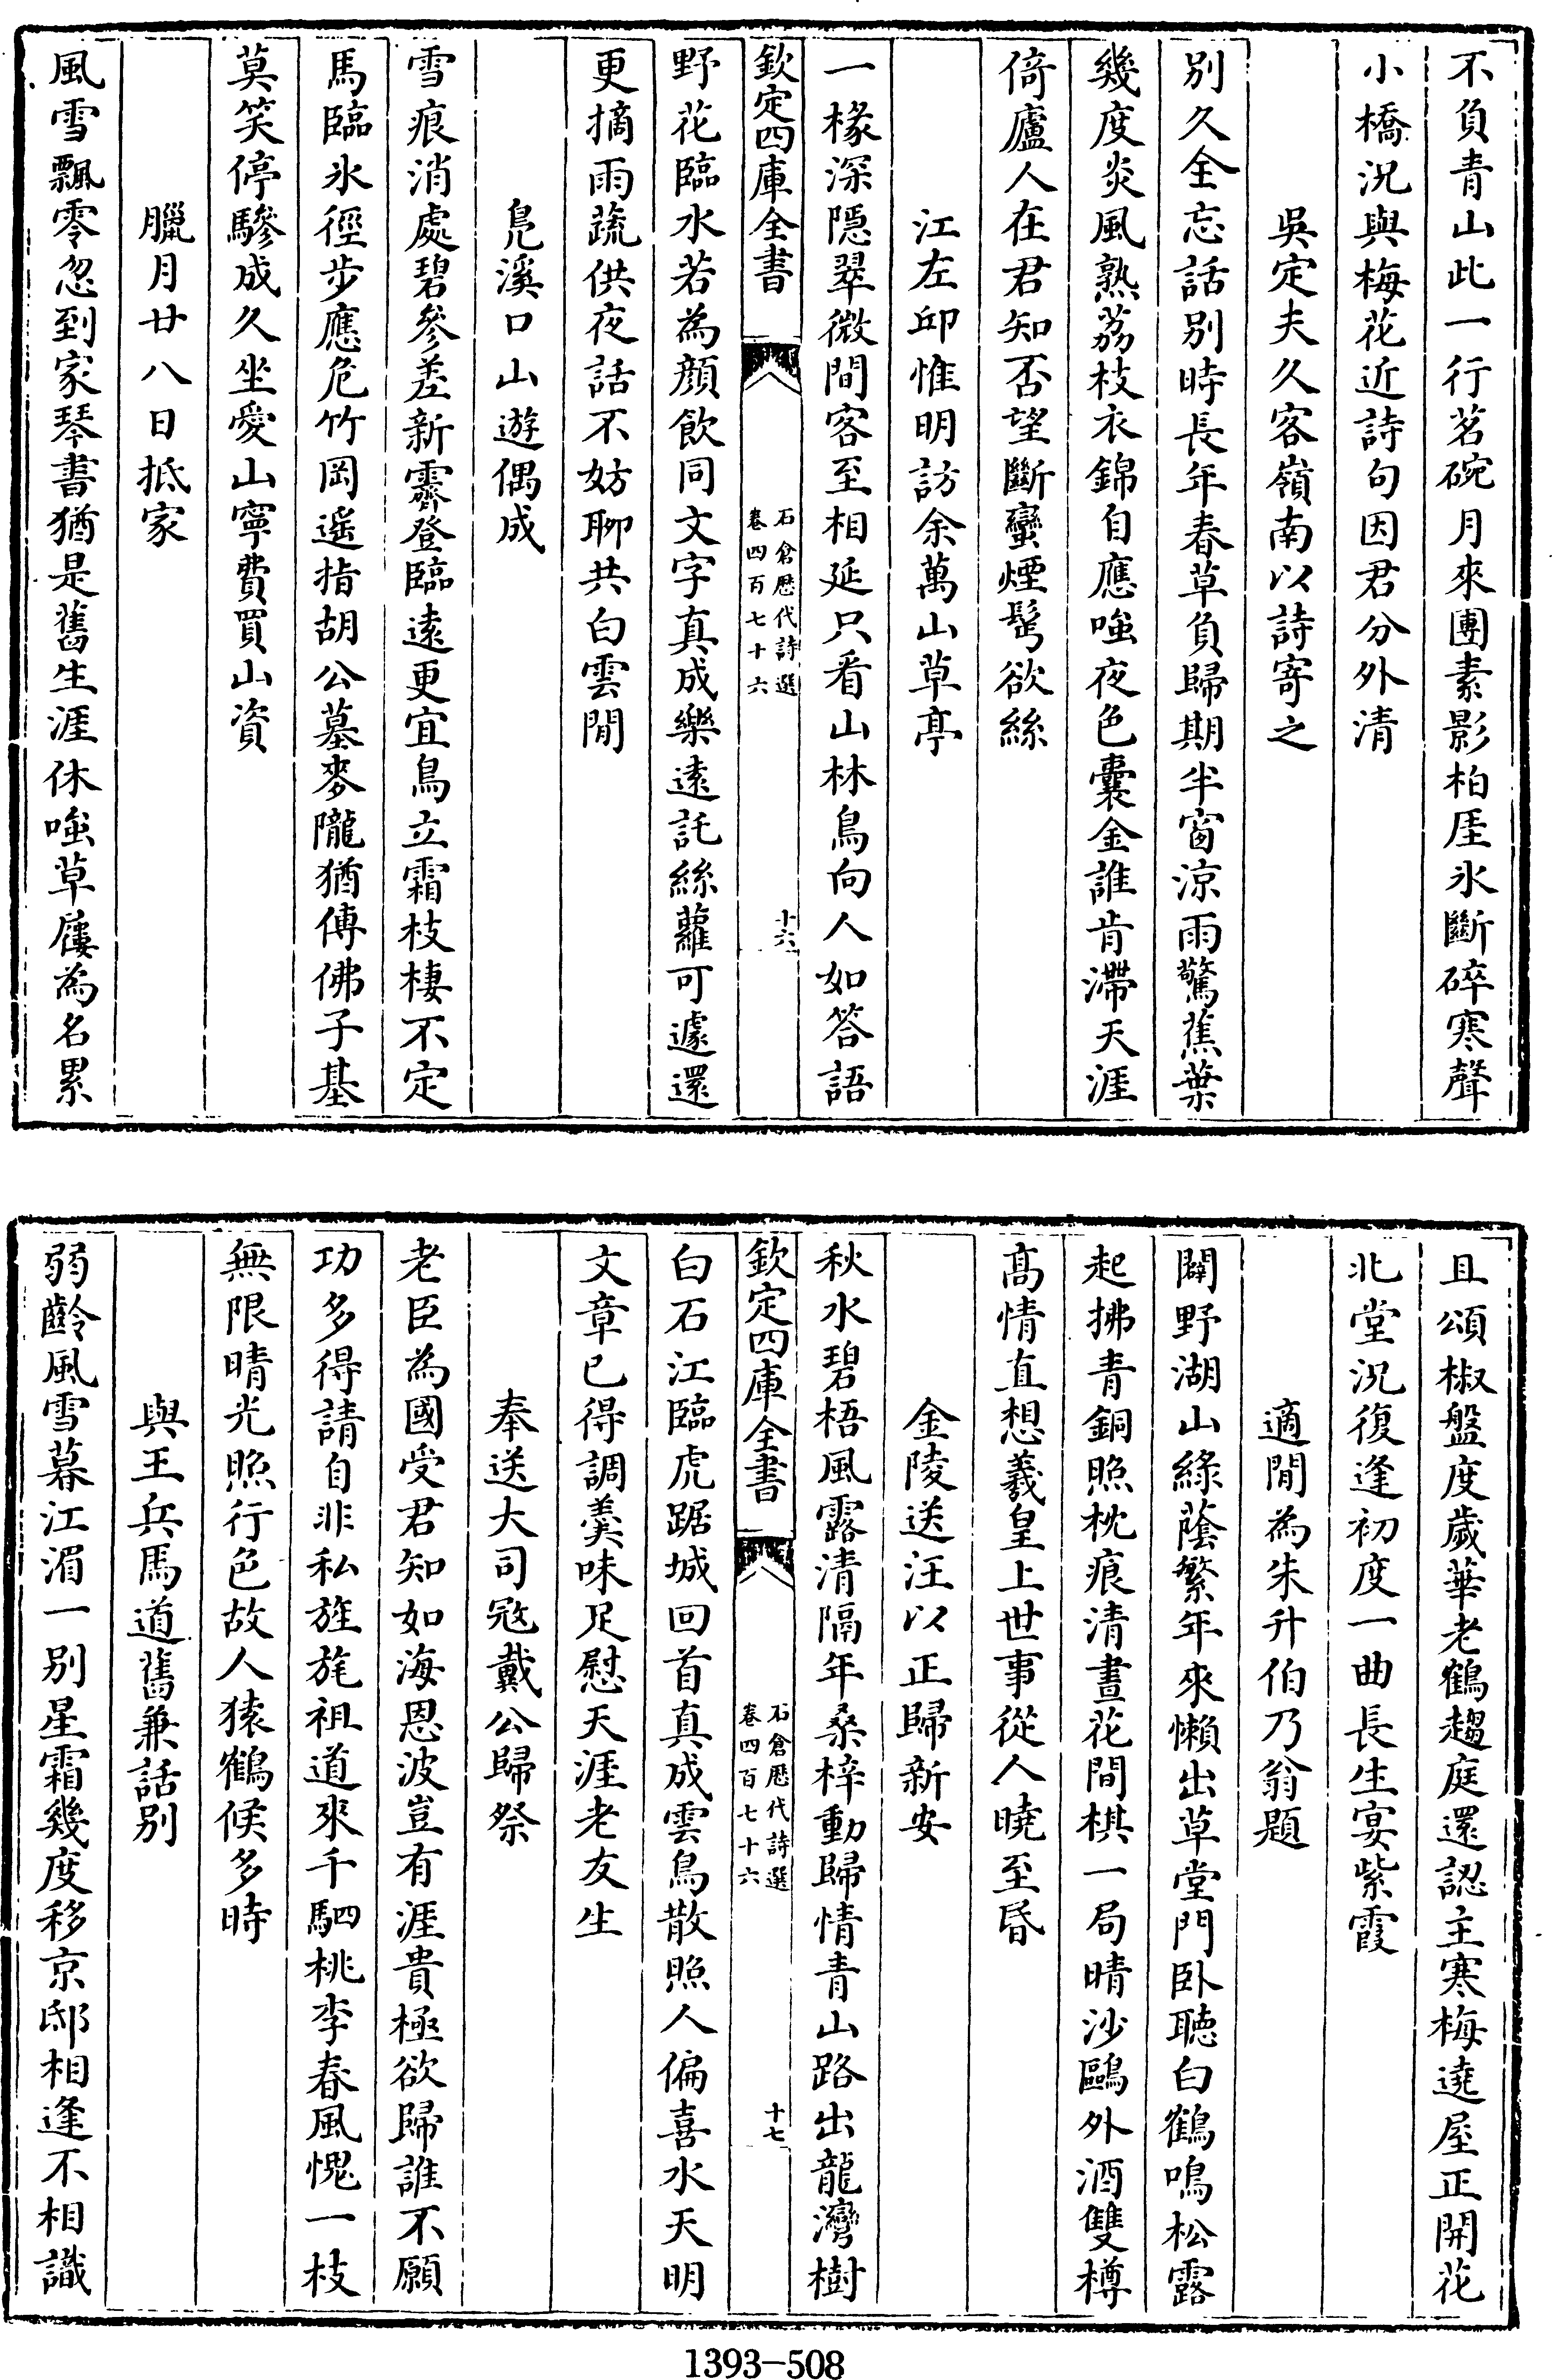 不負青山此一行茗碗月來團素影柏厓氷斷碎寒聲
小橋況與梅花近詩句因君分外清
吳定夫久客嶺南以詩寄之
別久全忘話別時長年春草負歸期半窗涼雨驚蕉葉
幾度炎風熟荔枝衣錦自應嗤夜色囊金誰肯滯天涯
倚廬人在君知否望斷蠻煙髩欲絲
江左邱惟明訪余萬山草亭
一椽深隠翠微間客至相延只看山林鳥向人如答語
欽定四庫全書
石倉歷代詩選
卷四百七十六
十六
野花臨水若為顔飲同文字真成樂遠託絲蘿可遽還
更摘雨蔬供夜話不妨聊共白雲閒
鳬溪口山遊偶成
雪痕消處碧參差新霽登臨遠更宜鳥立霜枝棲不定
馬臨氷徑步應危竹岡遥指胡公墓麥隴猶傳佛子基
莫笑停驂成久坐愛山寧費買山資
臘月廿八日抵家
風雪飄零忽到家琴書猶是舊生涯休嗤草屨為名累
且頌椒盤度歲華老鶴趨庭還認主寒梅遶屋正開花
北堂況復逢初度一曲長生宴紫霞
適閒為朱升伯乃翁題
闢野湖山綠蔭繁年來懶出草堂門卧聽白鶴鳴松露
起拂青銅照枕痕清晝花間棋一局晴沙鷗外酒雙樽
高情直想羲皇上世事從人曉至昏
金陵送汪以正歸新安
秋水碧梧風露清隔年桑梓動歸情青山路出龍灣樹
欽定四庫全書
石倉歷代詩選
卷四百七十六
十七
白石江臨虎踞城回首真成雲鳥散照人偏喜水天明
文章已得調羹味足慰天涯老友生
奉送大司寇戴公歸祭
老臣為國受君知如海恩波豈有涯貴極欲歸誰不願
功多得請自非私旌旄祖道來千駟桃李春風愧一枝
無限晴光照行色故人猿鶴候多時
與王兵馬道舊兼話別
弱齡風雪暮江湄一別星霜幾度移京邸相逢不相識
1393-508